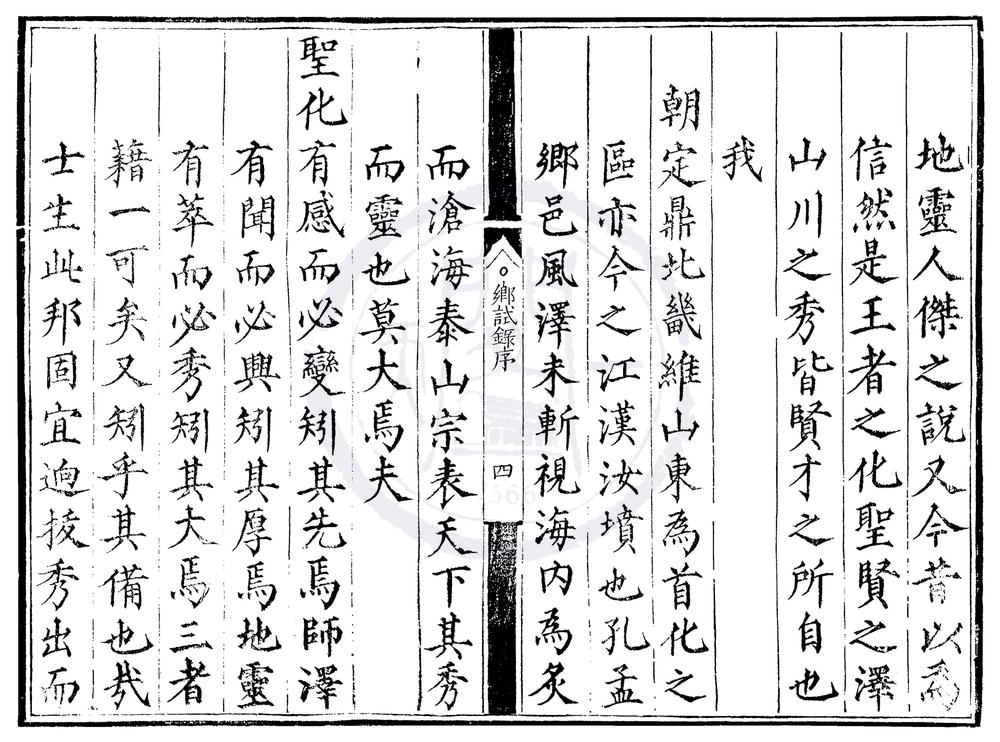 地靈人傑之說又今昔以為
信然是王者之化聖賢之澤
山川之秀皆賢才之所自也
我
朝定鼎北畿維山東為首化之
區亦今之江漢汝墳也孔孟
鄉邑風澤未斬視海內為炙
鄉試錄序
四
而滄海泰山宗表天下其秀
而靈也莫大焉夫
聖化有感而必變矧其先焉師澤
有聞而必興矧其厚焉地靈
有萃而必秀矧其大焉三者
藉一可矣又矧乎其備也哉
士生此邦固宜逈拔秀出而